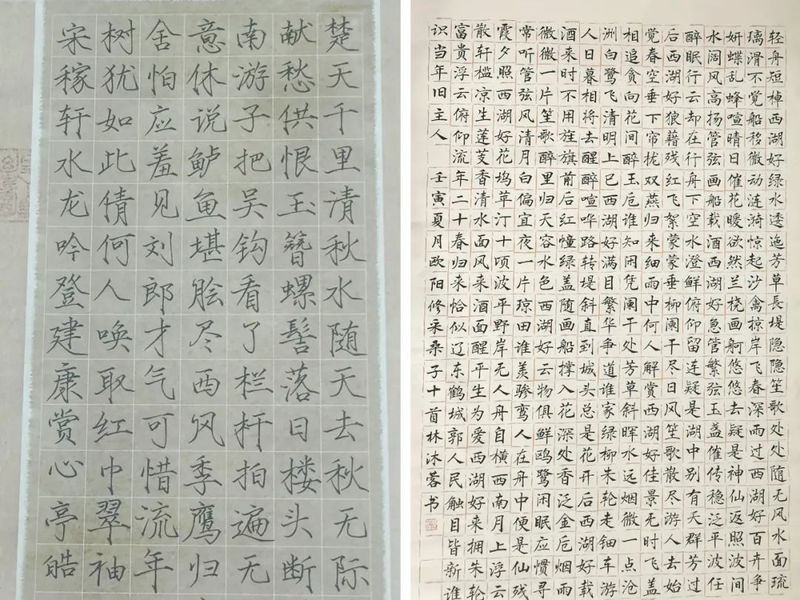 楚天千里清秋水随天去秋无际
献愁供恨玉簪螺髻落日楼头断
南游子把吴钩看了栏杆拍遍无
意休说鲈鱼堪脍尽西风季鹰归
舍怕应羞见刘郎才气可惜流年
树犹如此倩何人唤取红巾翠袖
宋稼轩水龙吟登建康赏心亭皓
轻舟短棹西湖好绿水逶迤芳草长堤隐隐笙歌处处随无风水面琉
璃滑不觉船移微动涟漪惊起沙禽掠岸飞春深雨过西湖好百卉争
妍蝶乱蜂喧晴日催花暖欲然兰桡画舸悠悠去疑是神仙返照波间
水阔风高扬管弦画船载酒西湖好急管繁弦玉盏催传稳泛平波任
醉眠行云却在行舟下空水澄鲜俯仰留连疑是湖中别有天群芳过
后西湖好狼藉残红飞絮蒙蒙垂柳阑干尽日风笙歌散尽游人去始
觉春空垂下帘栊双燕归来细雨中何人解赏西湖好佳景无时飞盖
相追贪向花间醉玉卮谁知闲凭阑干处芳草斜晖水远烟微一点沧
洲白鹭飞清明上巳西湖好满目繁华争道谁家绿柳朱轮走钿车游
人日暮相将去醒醉喧哗路转堤斜直到城头总是花开后西湖好载
酒来时不用旌旗前后红幢绿盖随画船撑入花深处香泛金卮烟雨
微微一片笙歌醉里归天容水色西湖好云物俱鲜鸥鹭闲眠应惯寻
常听管弦风清月白偏宜夜一片琼田谁羡骖鸾人在舟中便是仙残
霞夕照西湖好花坞草汀十顷波平野岸无人舟自横西南月上浮云
散轩槛凉生莲芰香清水面风来酒面醒平生为爱西湖好来拥朱轮
富贵浮云俯仰流年二十春归来恰似辽东鹤城郭人民触目皆新谁
识当年旧主人 壬寅夏月欧阳修采桑子十首林沐蓉书